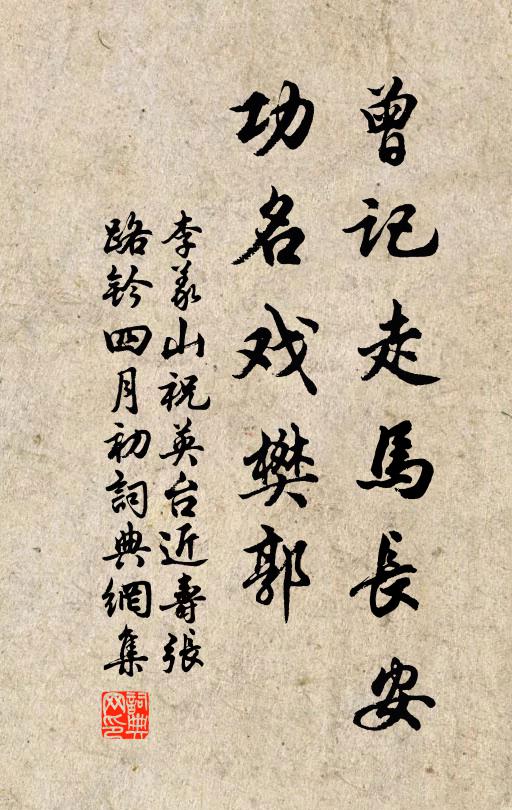 曾记走馬長安
功名戏樊郭
李義山祝英台近壽張
路鈐四月初詞典網集
詞典网印